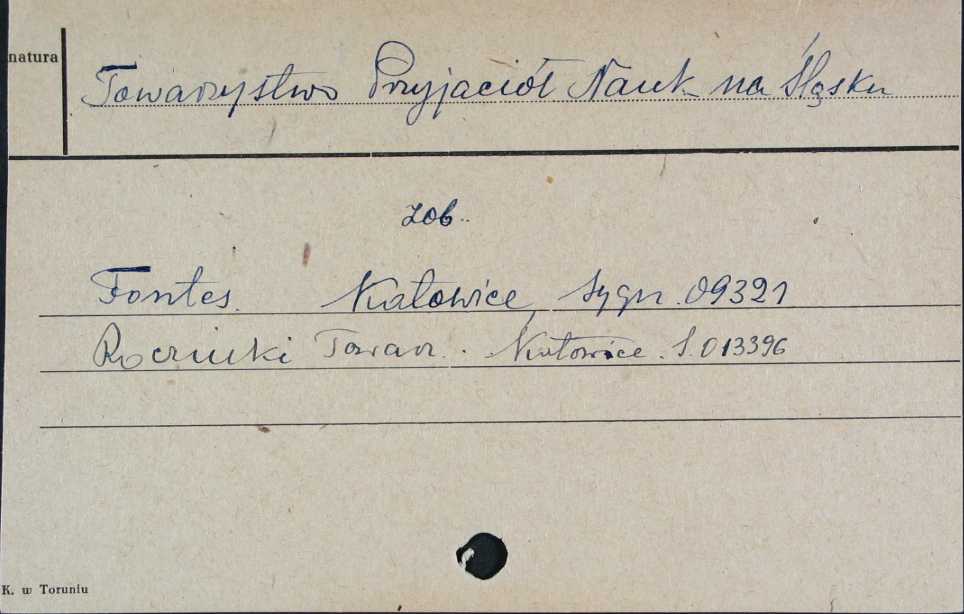 natura
Towarzystwo Przyjaciół Nauk na Śląsku
zob.
Fontes. Katowice, Sygn. 09321
Roczniki Towarz. Katowice. S. 013396
K. w Toruniu